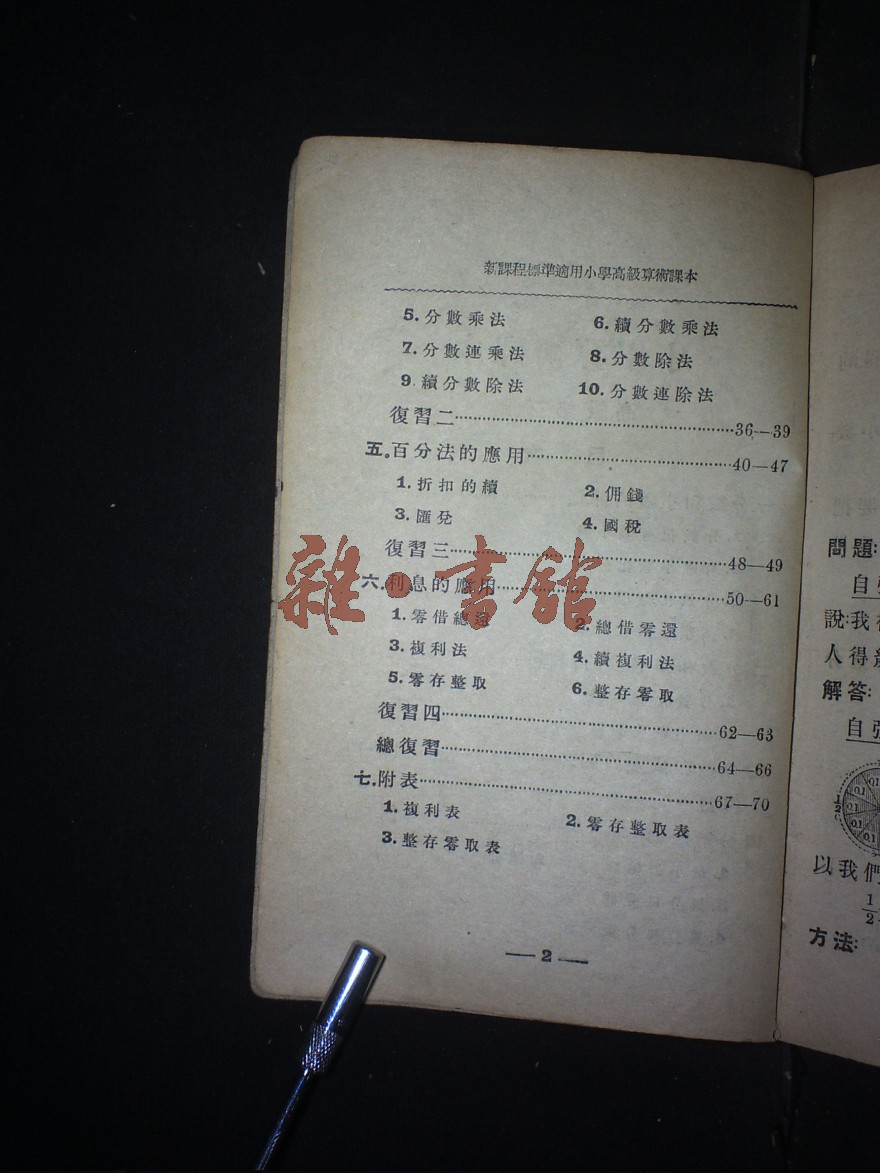 新課程標準適用小學高級算術課本
5. 分數乘法 6. 續分數乘法
7. 分數連乘法 8. 分數除法
9. 續分數除法 10. 分數連除法
復習二……36—39
五。百分法的應用……40—47
1. 折扣的續 2. 佣錢
3. 匯兌 4. 國稅
復習三……48—49
六.利息的應用……50—61
1. 零借總還 2. 總借零還
3. 複利法 4. 續複利法
5. 零存整取 6. 整存零取
復習四……62—63
總復習……64—66
七.附表……67—70
1. 複利表 2. 零存整取表
3. 整存零取表
— 2 —
雜·書館
問題:
自
說:我
人得
解答:
自
0.1
0.1
0.1
0.1
以我們
1
2
方法: